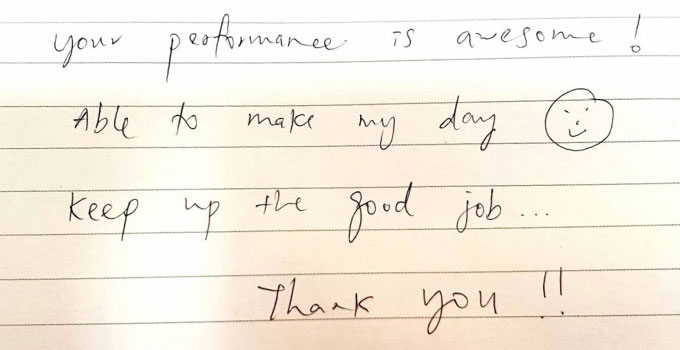 your performance is awesome!
Able to make my day
keep up the good job...
Thank you!!